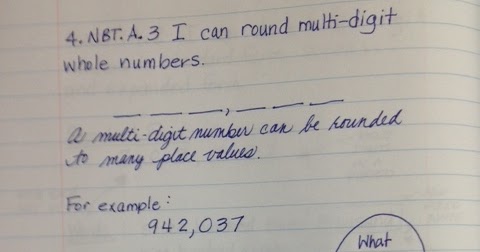 4. NBT. A. 3 I can round multi-digit
whole numbers.
_ _ _ , _ _ _
A multi-digit number can be rounded
to many place values.
For example:
942,037
What